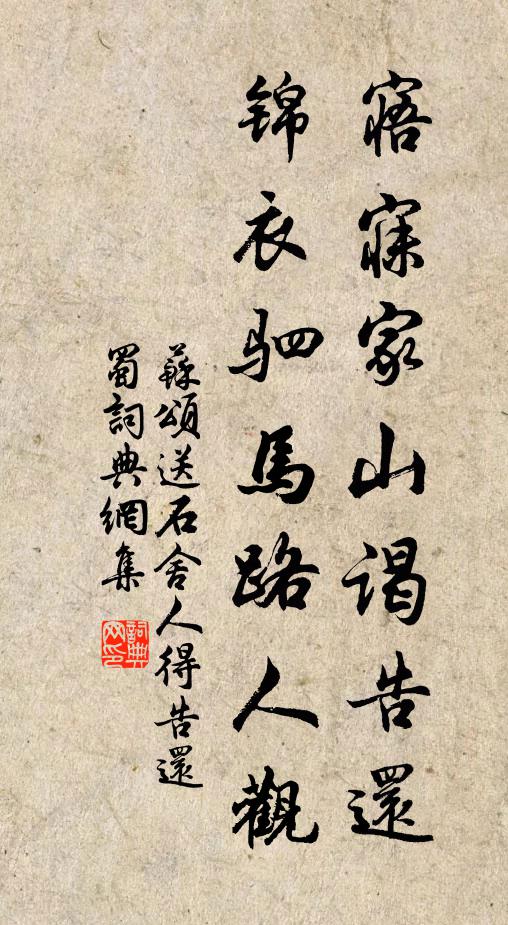 寤寐家山谒告還
锦衣驷馬路人觀
蘇頌送石舍人得告還
蜀詞典網集
詞典網印